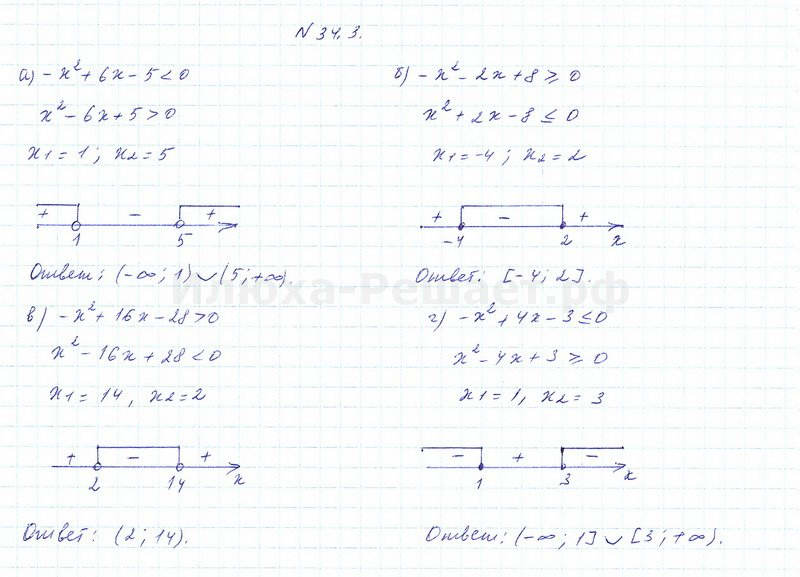 N 34.3.
а) -x²+6x-5<0
x²-6x+5>0
x1=1; x2=5
+ - +
1 5
Ответ: (-∞; 1)∪(5;+∞).
б) -x²-2x+8≥0
x²+2x-8≤0
x1=-4; x2=2
+ - +
-4 2 x
Ответ: [-4; 2].
илюха-Решает.рф
в) -x²+16x-28>0
x²-16x+28<0
x1=14, x2=2
+ - +
2 14 x
Ответ: (2; 14).
г) -x²+4x-3≤0
x²-4x+3≥0
x1=1, x2=3
- + -
1 3 x
Ответ: (-∞; 1]∪[3;+∞).